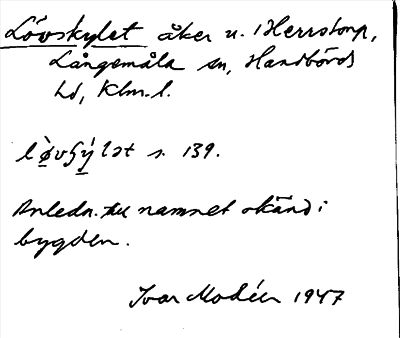 Lövskylet åker u. Herrstorp,
Långemåla sn, Handbörds
hd, Klm. l.
lø̀vʂýlət s. 139.
Anledn. till namnet okänd i
bygden.
Ivar Modéer 1947